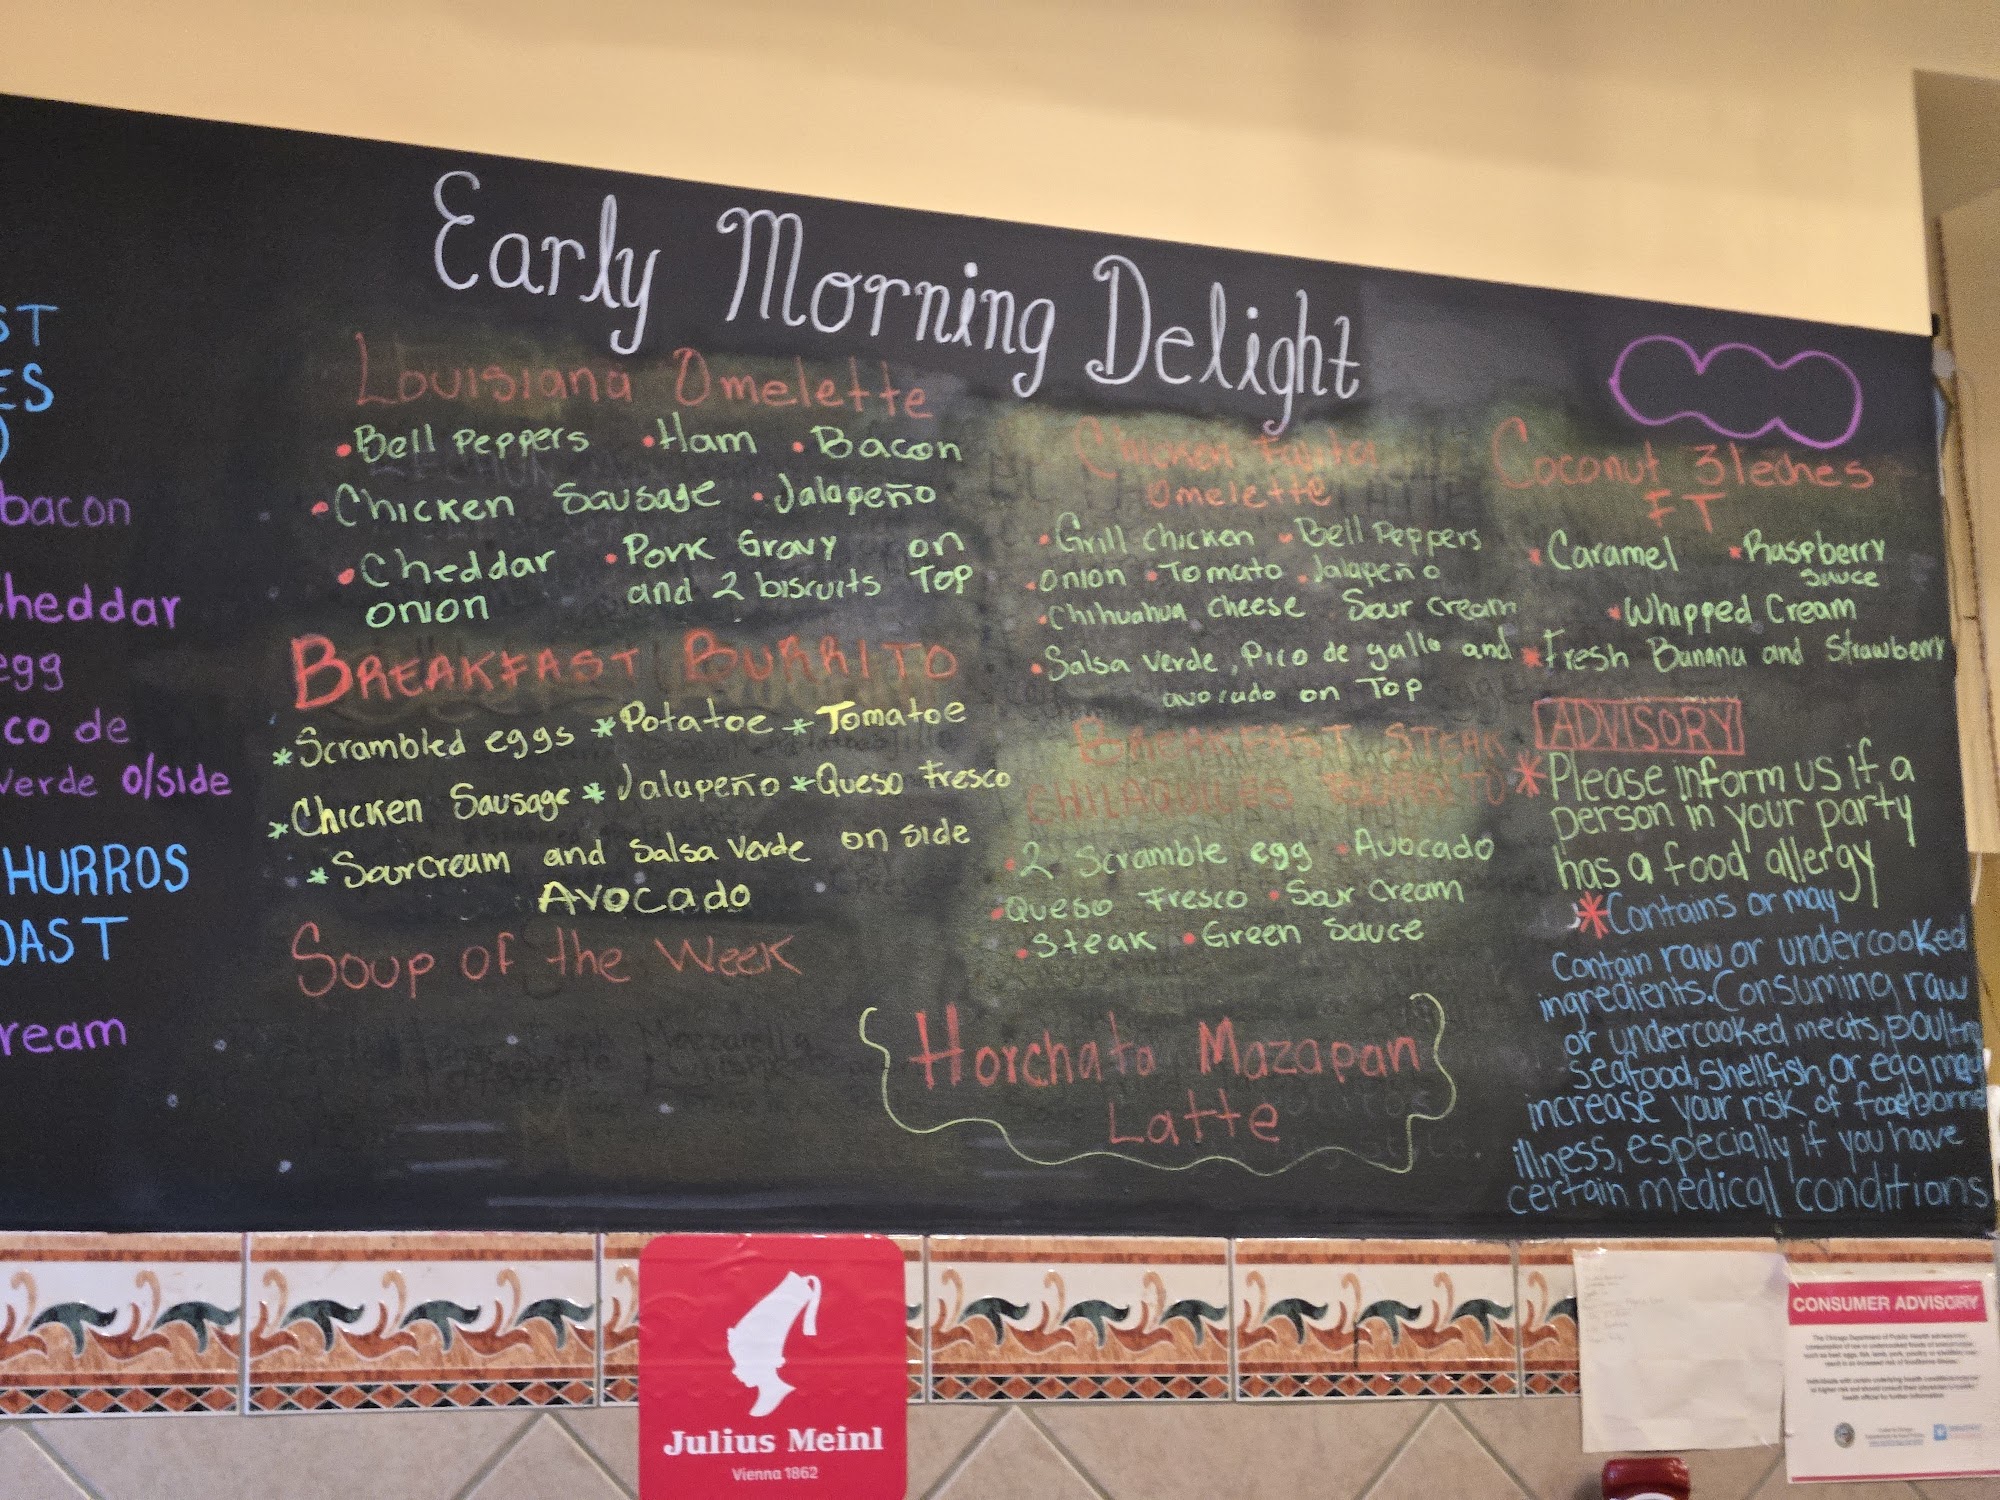 Early Morning Delight
ST
ES
)
bacon
heddar
egg
co de
verde o/side
HURROS
OAST
ream
Louisiana Omelette
•Bell Peppers •Ham •Bacon
•Chicken Sausage •Jalapeño
•Cheddar •Pork Gravy on
onion and 2 biscuits Top
BREAKFAST BURRITO
*Scrambled eggs *Potatoe *Tomatoe
*Chicken Sausage *Jalapeño *Queso Fresco
*Sourcream and Salsa Verde on side
Avocado
Soup of the Week
Chicken Fajita
Omelette
•Grill chicken •Bell Peppers
•onion •Tomato •Jalapeño
•Chihuahua cheese Sour cream
•Salsa verde, Pico de gallo and
avocado on Top
BREAKFAST STEAK
CHILAQUILES BURRITO
•2 Scramble egg •Avocado
•Queso Fresco •Sour Cream
•Steak •Green Sauce
Horchata Mazapan
Latte
Coconut 3leches
FT
*Caramel *Raspberry
Sauce
*Whipped Cream
*Fresh Banana and Strawberry
ADVISORY
*Please inform us if a
person in your party
has a food allergy
*Contains or may
contain raw or undercooked
ingredients. Consuming raw
or undercooked meats, poultry
seafood, shellfish, or egg may
increase your risk of foodborne
illness, especially if you have
certain medical conditions
Julius Meinl
Vienna 1862
CONSUMER ADVISORY